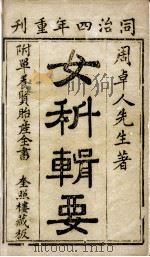 同治四年重刊
周卓人先生著
女科輯要
附單養賢胎產全書
奎照樓藏板